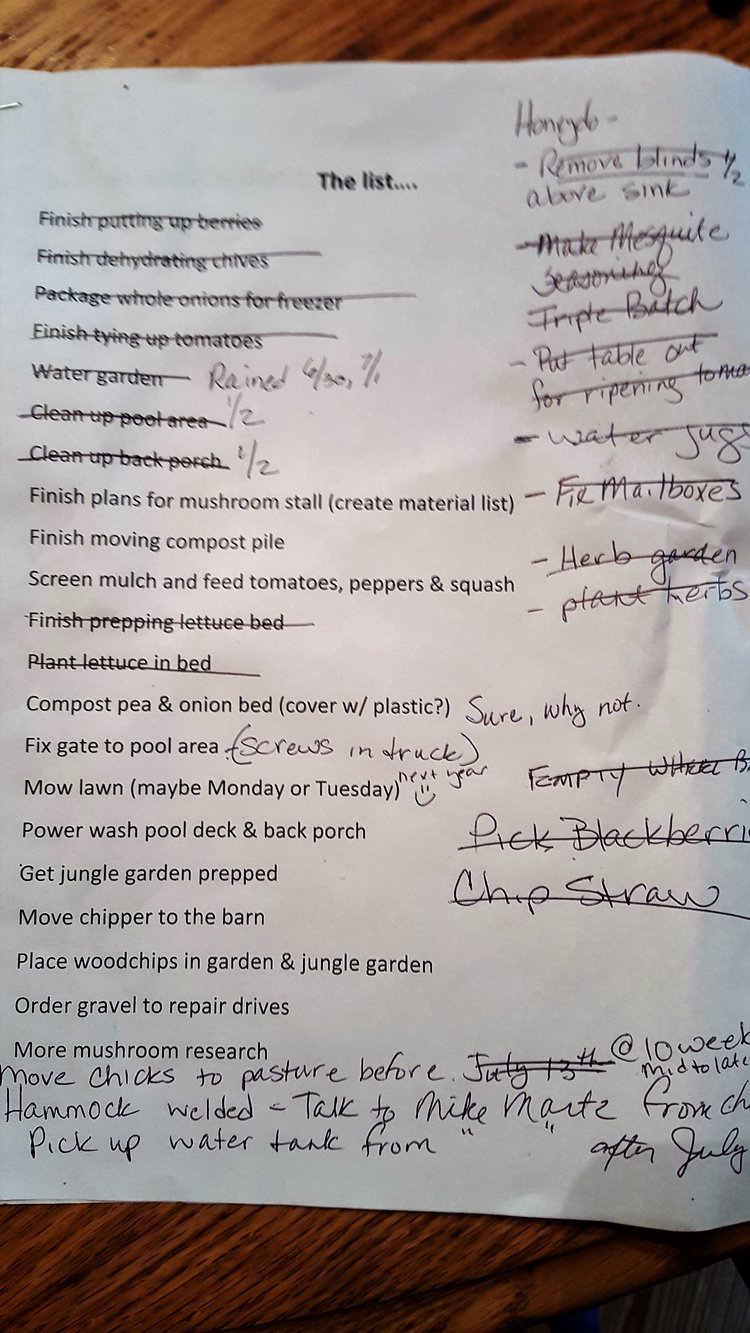 The list....
Finish putting up berries
Finish dehydrating chives
Package whole onions for freezer
Finish tying up tomatoes
Water garden Rained 6/30, 7/1
Clean up pool area 1/2
Clean up back porch 1/2
Finish plans for mushroom stall (create material list)
Finish moving compost pile
Screen mulch and feed tomatoes, peppers & squash
Finish prepping lettuce bed
Plant lettuce in bed
Compost pea & onion bed (cover w/ plastic?) Sure, why not.
Fix gate to pool area (screws in truck)
Mow lawn (maybe Monday or Tuesday) next year
Power wash pool deck & back porch
Get jungle garden prepped
Move chipper to the barn
Place woodchips in garden & jungle garden
Order gravel to repair drives
More mushroom research
Move chicks to pasture before July 13th @ 10 week
mid to late
Hammock welded - Talk to Mike Martz from ch
Pick up water tank from " " after July
Honeydo -
- Remove blinds 1/2
above sink
- Make Mesquite
seasoning
Triple Batch
- Put table out
for ripening toma
- water jugs
- Fix Mailboxes
- Herb garden
- plant herbs
EMPTY WHEEL B
Pick Blackberri
Chip Straw